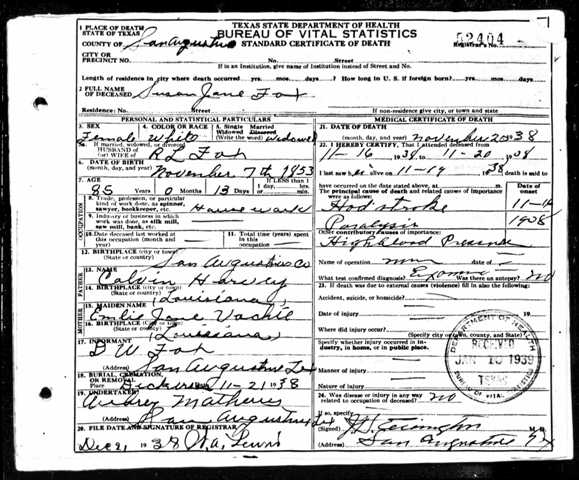 TEXAS STATE DEPARTMENT OF HEALTH
BUREAU OF VITAL STATISTICS
STANDARD CERTIFICATE OF DEATH
52404
Registrar's No.
1 PLACE OF DEATH
STATE OF TEXAS
COUNTY OF San Augustine
CITY OR
PRECINCT NO. No. Street
If in an Institution, give name of Institution instead of Street and No.
Length of residence in city where death occurred yrs. mos. days. How long in U. S. if foreign born? yrs. mos. days
2 FULL NAME OF DECEASED Susan Jane Fox
Residence: No. Street
If non-residence give city or town and state
PERSONAL AND STATISTICAL PARTICULARS
3. SEX 4. COLOR OR RACE 5. Single Married Widowed Divorced
Female White (Write the word) Widowed
5a. If married, widowed, or divorced
HUSBAND OF
(or) WIFE OF R L Fox
6. DATE OF BIRTH
(month, day, year) November 7th 1853
7. AGE If less than 1 day, hours min.
85 years 0 months 13 days
8. Trade, profession, or particular kind of work done, as spinner, sawyer, bookkeeper, etc. House work
9. Industry or business in which work was done, as silk mill, saw mill, bank, etc.
OCCUPATION
10. Date deceased last worked at this occupation (month and year) 11. Total time (years) spent in this occupation
12. BIRTHPLACE (city or town)
(State or country) San Augustine Co
FATHER
13. NAME Calvin Harvey
14. BIRTHPLACE (city or town)
(State or country) (Louisiana)
MOTHER
15. MAIDEN NAME
Jane
16. BIRTHPLACE (city or town)
(State or country) (Louisiana)
17. INFORMANT B W Fox
(Address) San Augustine Tex
18. BURIAL, CREMATION, OR REMOVAL
Place 11-21 1938
19. UNDERTAKER
Aubrey Mathews
(Address) San Augustine Tex
20. FILE DATE AND SIGNATURE OF REGISTRAR
Dec 21 1938 W.A. Lewis
MEDICAL CERTIFICATE OF DEATH
21. DATE OF DEATH
(month, day, year) November 20 1938
22. I HEREBY CERTIFY, That I attended deceased from
11-16 1938 to 11-20 1938
I last saw her alive on 11-19 1938 death is said to
have occurred on the date stated above, at m.
The principal cause of death and related causes of importance were as follows: Date of onset
Had stroke 11-16
Paralysis 1938
Other contributory causes of importance:
High blood Pressure
Name of operation date of
What test confirmed diagnosis? Was there an autopsy? no
23. If death was due to external causes (violence) fill in also the following:
Accident, suicide, or homicide?
Date of injury 19
Where did injury occur?
(Specify city or town, county, and State)
Specify whether injury occurred in industry, in home, or in public place.
Manner of injury
Nature of injury
24. Was disease or injury in any way related to occupation of deceased? no
If so, specify
(Signed) M D
(Address) San Augustine Tex
DEPARTMENT OF HEALTH
RECEIVED
JAN 10 1939
TEXAS
BUREAU OF VITAL STATISTICS